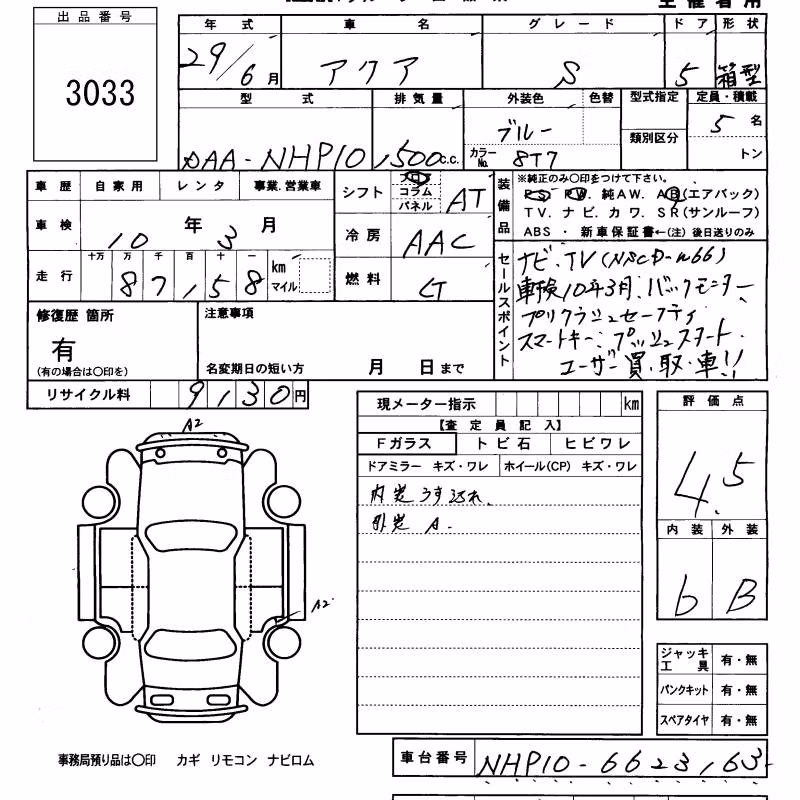 出品番号
3033
年式 車名 グレード ドア 形状
29/6月 アクア S 5 箱型
型式 排気量 外装色 色替 型式指定 定員・積載
DAA-NHP10 1,500c.c. ブルー 類別区分 5名
カラーNo. 8T7 トン
車歴 自家用 レンタ 事業.営業車
車検 10年3月
走行 十万 万 千 百 十 一 km マイル
87,158
シフト フロア コラム パネル AT
冷房 AAC
燃料 LT
装備品 ※純正のみ○印をつけて下さい。
PS. PW. 純AW. AB(エアバック)
TV. ナビ. カワ. SR(サンルーフ)
ABS ・ 新車保証書←(注) 後日送りのみ
セールスポイント
ナビ.TV(NSCD-W66)
車検10年3月.バックモニター
プリクラッシュセーフティ
スマートキー.プッシュスタート
ユーザー買.取.車!!
修復歴 箇所
有
(有の場合は○印を)
注意事項
名変期日の短い方 月 日まで
リサイクル料 9,130円
A2
A2
現メーター指示 km
【査定員記入】
Fガラス トビ石 ヒビワレ
ドアミラー キズ・ワレ ホイール(CP) キズ・ワレ
内装うす汚れ、
外装 A.
評価点
4.5
内装 外装
6 B
ジャッキ工具 有・無
パンクキット 有・無
スペアタイヤ 有・無
事務局預り品は○印 カギ リモコン ナビロム
車台番号 NHP10-6623163